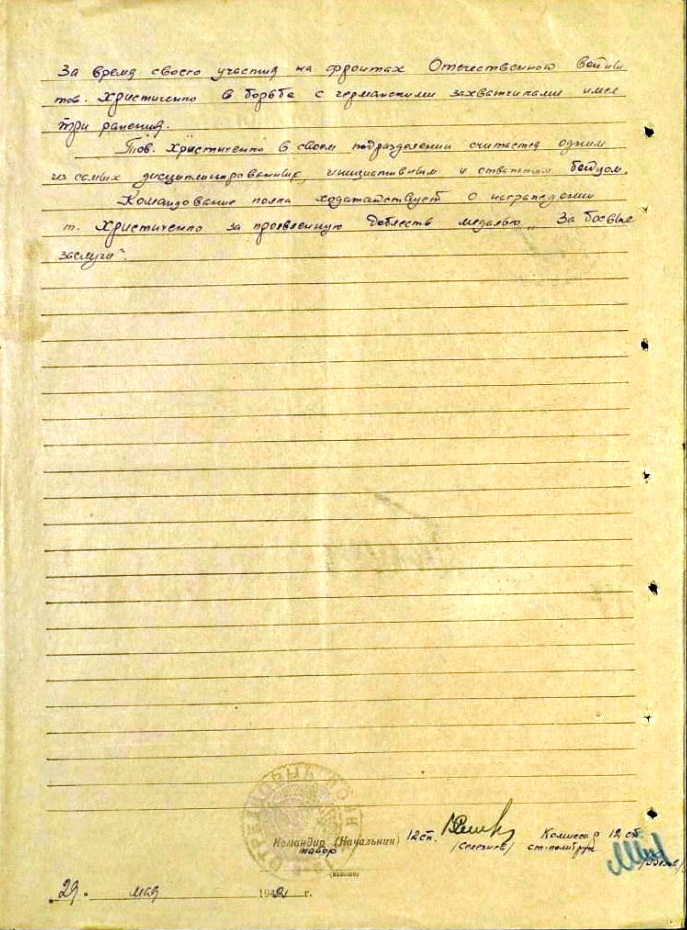 За время своего участия на фронтах Отечественной войны
тов. Христиченко в борьбе с германскими захватчиками имел
три ранения.
Тов. Христиченко в своем подразделении считается одним
из самых дисциплинированных, инициативным и отважным бойцом.
Командование полка ходатайствует о награждении
т. Христиченко за проявленную доблесть медалью „За боевые
заслуги“.
Командир (Начальник) 12 сп. Комиссар 12 сп.
майор /Селезнев/ ст. политрук
29. мая 1942 г.